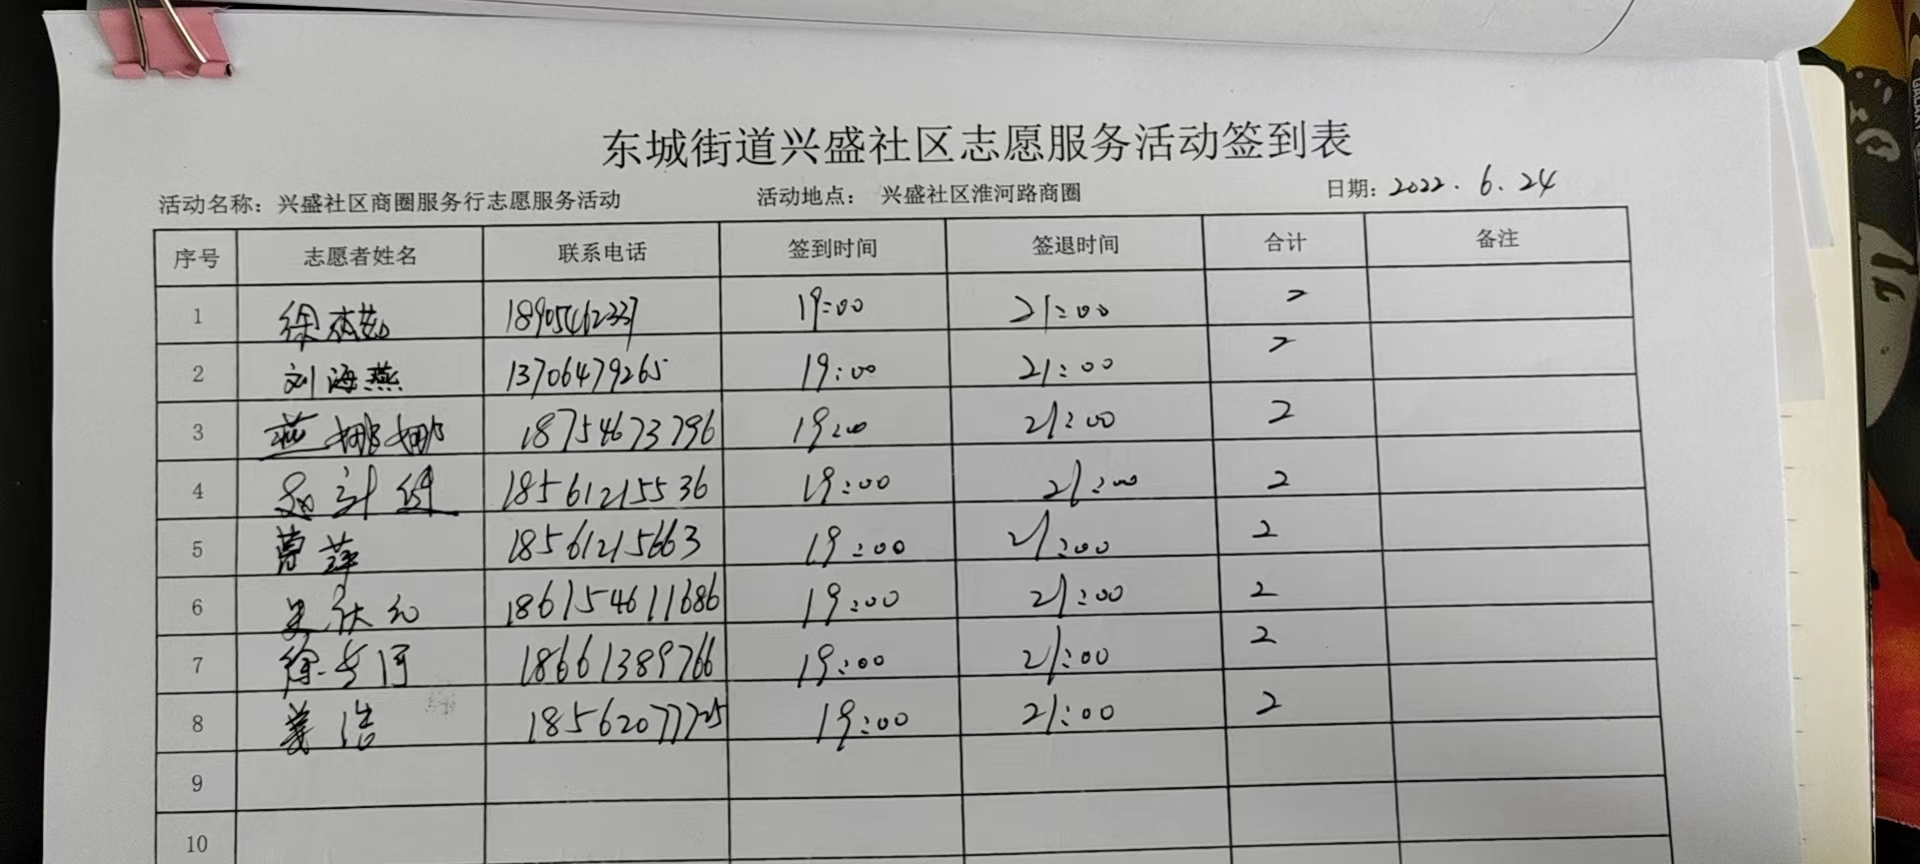 东城街道兴盛社区志愿服务活动签到表
活动名称：兴盛社区商圈服务行志愿服务活动 活动地点： 兴盛社区淮河路商圈 日期：2022.6.24
序号 志愿者姓名 联系电话 签到时间 签退时间 合计 备注
1 徐 18905462337 19:00 21:00 2
2 刘海燕 13706479265 19:00 21:00 2
3 燕娜娜 18754673796 19:00 21:00 2
4 18561215536 19:00 21:00 2
5 曹萍 18561215663 19:00 21:00 2
6 186154611686 19:00 21:00 2
7 徐 河 18661389766 19:00 21:00 2
8 姜浩 18562077725 19:00 21:00 2
9
10